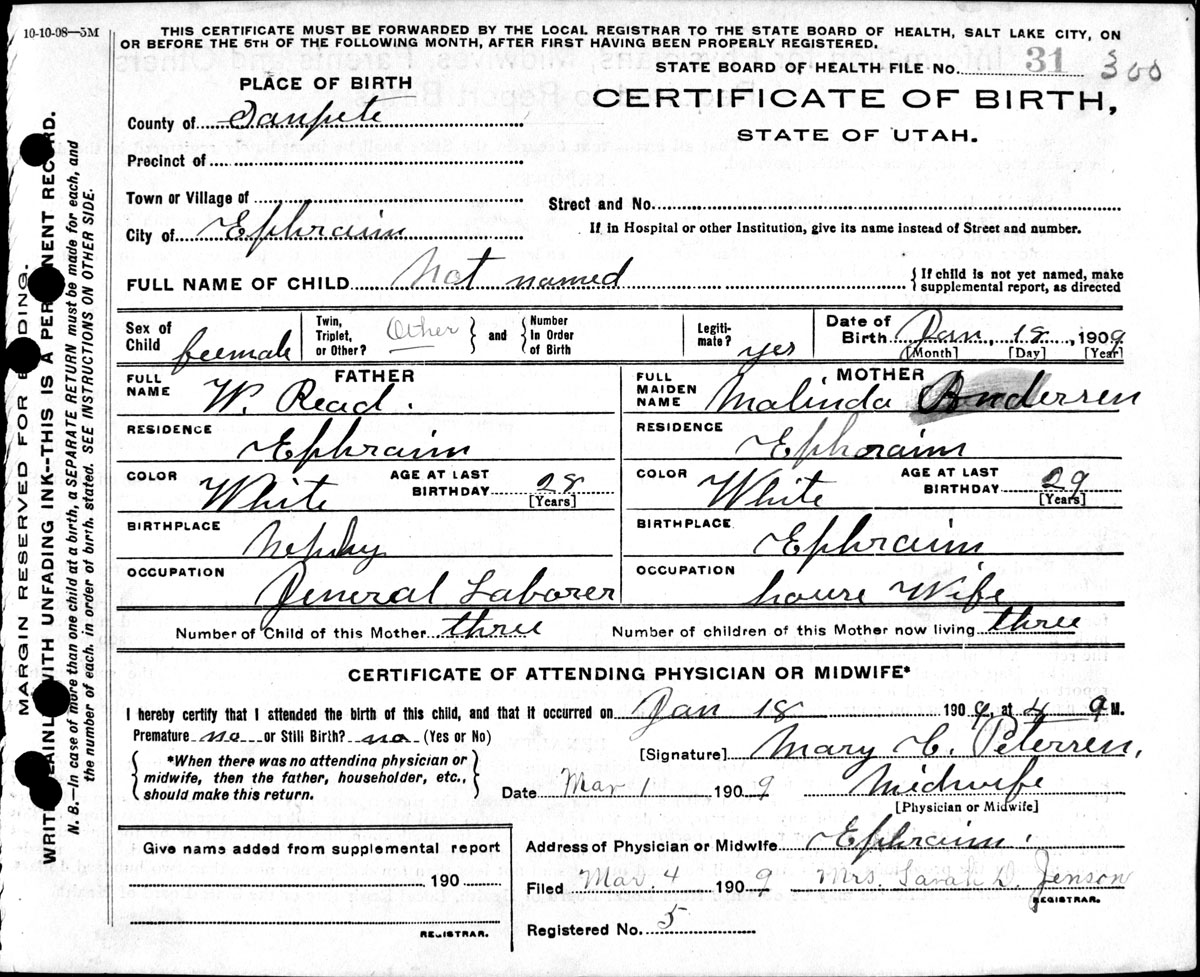 10-10-08—5M
THIS CERTIFICATE MUST BE FORWARDED BY THE LOCAL REGISTRAR TO THE STATE BOARD OF HEALTH, SALT LAKE CITY, ON
OR BEFORE THE 5TH OF THE FOLLOWING MONTH, AFTER FIRST HAVING BEEN PROPERLY REGISTERED.
STATE BOARD OF HEALTH FILE NO. 31 300
PLACE OF BIRTH
CERTIFICATE OF BIRTH,
STATE OF UTAH.
County of Sanpete
Precinct of
Town or Village of
Street and No.
City of Ephraim
If in Hospital or other Institution, give its name instead of Street and number.
FULL NAME OF CHILD Not named
{If child is not yet named, make
supplemental report, as directed
Sex of Child feemale
Twin, Triplet, or Other? Other } and { Number In Order of Birth
Legiti-mate? yes
Date of Birth Jan, 18, 1909
[Month] [Day] [Year]
FATHER
FULL NAME W. Read.
RESIDENCE Ephraim
COLOR White
AGE AT LAST BIRTHDAY 28
[Years]
BIRTHPLACE Nephy
OCCUPATION General Laborer
MOTHER
FULL MAIDEN NAME Malinda Anderren
RESIDENCE Ephoraim
COLOR White
AGE AT LAST BIRTHDAY 29
[Years]
BIRTHPLACE Ephraim
OCCUPATION house Wife
Number of Child of this Mother three
Number of children of this Mother now living three
CERTIFICATE OF ATTENDING PHYSICIAN OR MIDWIFE*
I hereby certify that I attended the birth of this child, and that it occurred on Jan 18 1909, at 4 a M.
Premature no or Still Birth? no (Yes or No)
[Signature] Mary C. Peterren,
{ *When there was no attending physician or
midwife, then the father, householder, etc.,
should make this return. }
Date Mar 1 1909 Midwife
[Physician or Midwife]
Give name added from supplemental report
190
REGISTRAR.
Address of Physician or Midwife Ephraim.
Filed Mar. 4 1909 Mrs. Sarah D. Jenson
REGISTRAR.
Registered No. 5
MARGIN RESERVED FOR BINDING.
WRITE PLAINLY WITH UNFADING INK--THIS IS A PERMANENT RECORD.
N. B.—In case of more than one child at a birth, a SEPARATE RETURN must be made for each, and
the number of each, in order of birth, stated. SEE INSTRUCTIONS ON OTHER SIDE.